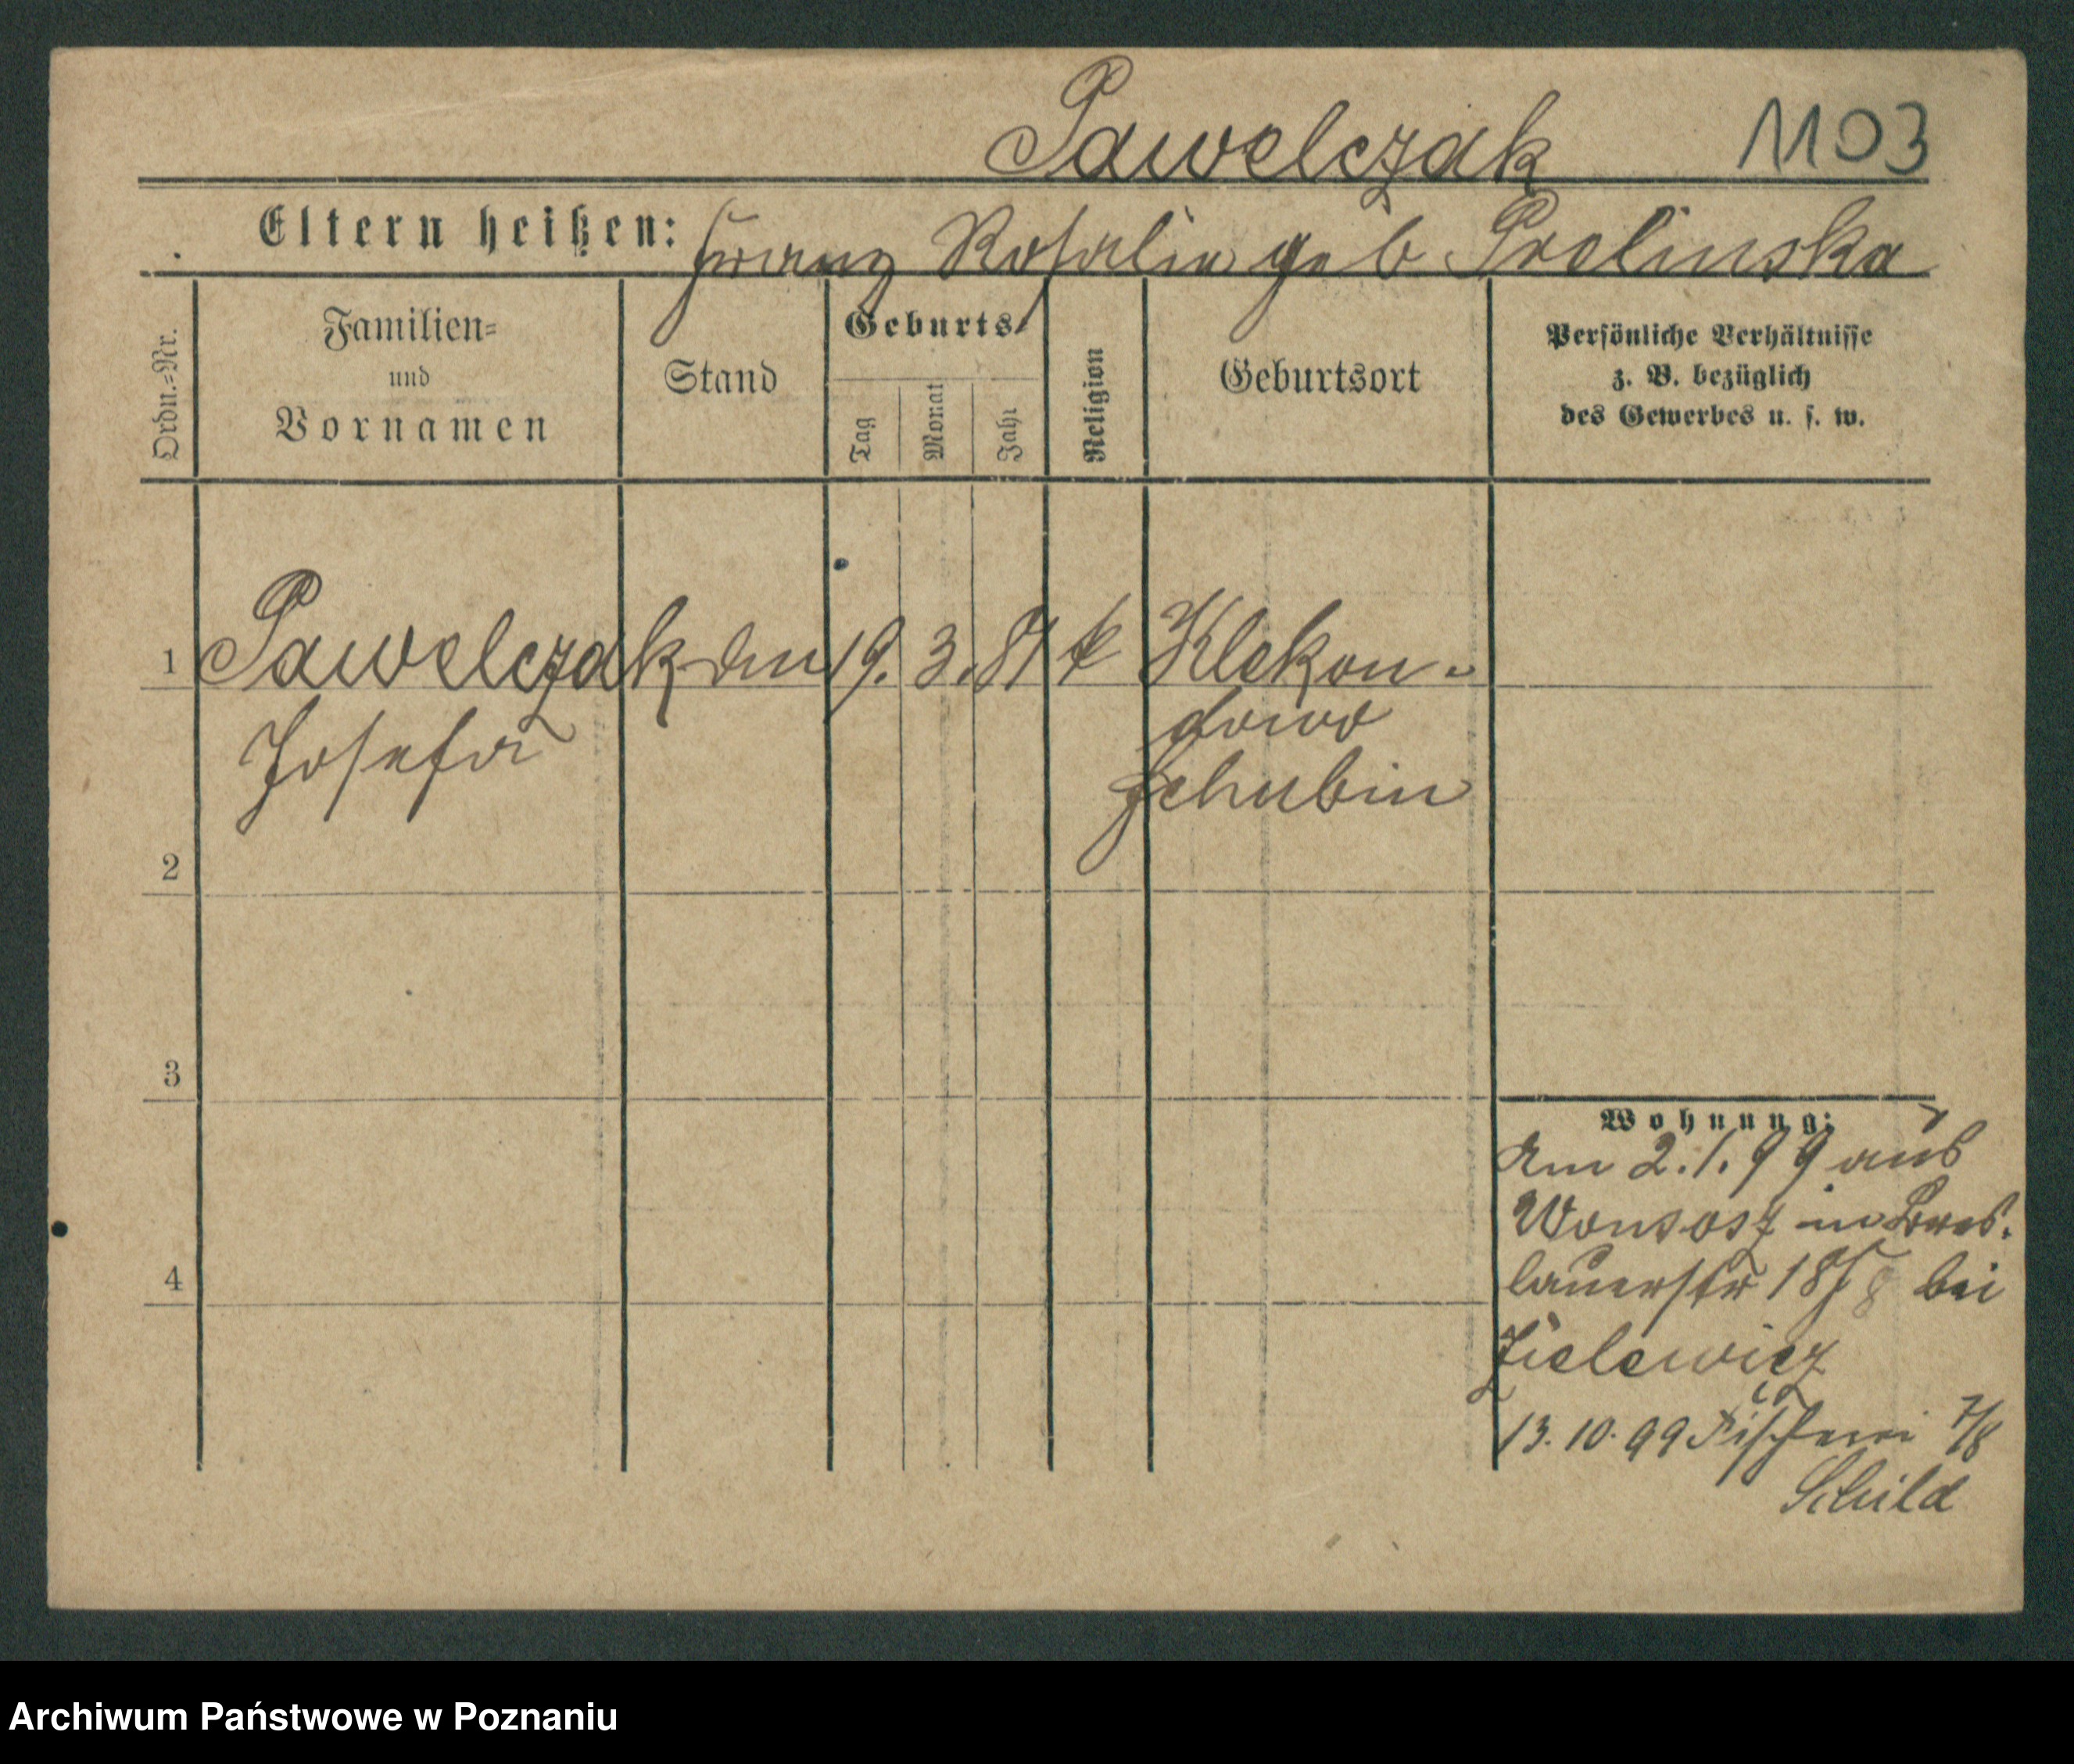 Pawelczak 1103
Eltern heißen: Franz Rosalie geb Prelinska
Ordn.=Nr.
Familien=
und
Vornamen
Stand
Geburts=
Tag
Monat
Jahr
Religion
Geburtsort
Persönliche Verhältnisse
z. B. bezüglich
des Gewerbes u. s. w.
1 Pawelczak 19. 3. 81 k Klekon-
dowo
Josefa
Schubin
2
3
4
Wohnung:
Am 2.1.99 aus
Wonsosz in Bres.
lauerstr 18/ bei
Zielewicz
13.10.99 Fischerei 7/8
Schild
Archiwum Państwowe w Poznaniu